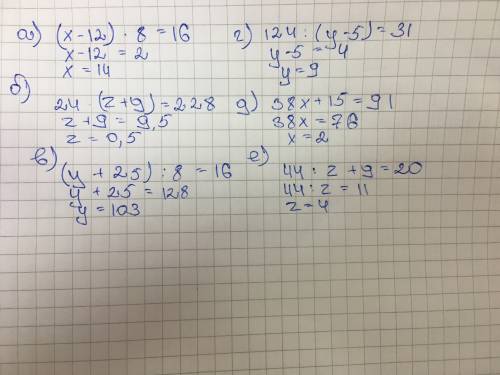 а) (x-12) · 8 = 16
x-12 = 2
x = 14
б)
24 · (z+9) = 228
z+9 = 9,5
z = 0,5
в)
(y + 25) : 8 = 16
y + 25 = 128
y = 103
г) 124 : (y-5) = 31
y-5 = 4
y = 9
д) 38x + 15 = 91
38x = 76
x = 2
е) 44 : z + 9 = 20
44 : z = 11
z = 4